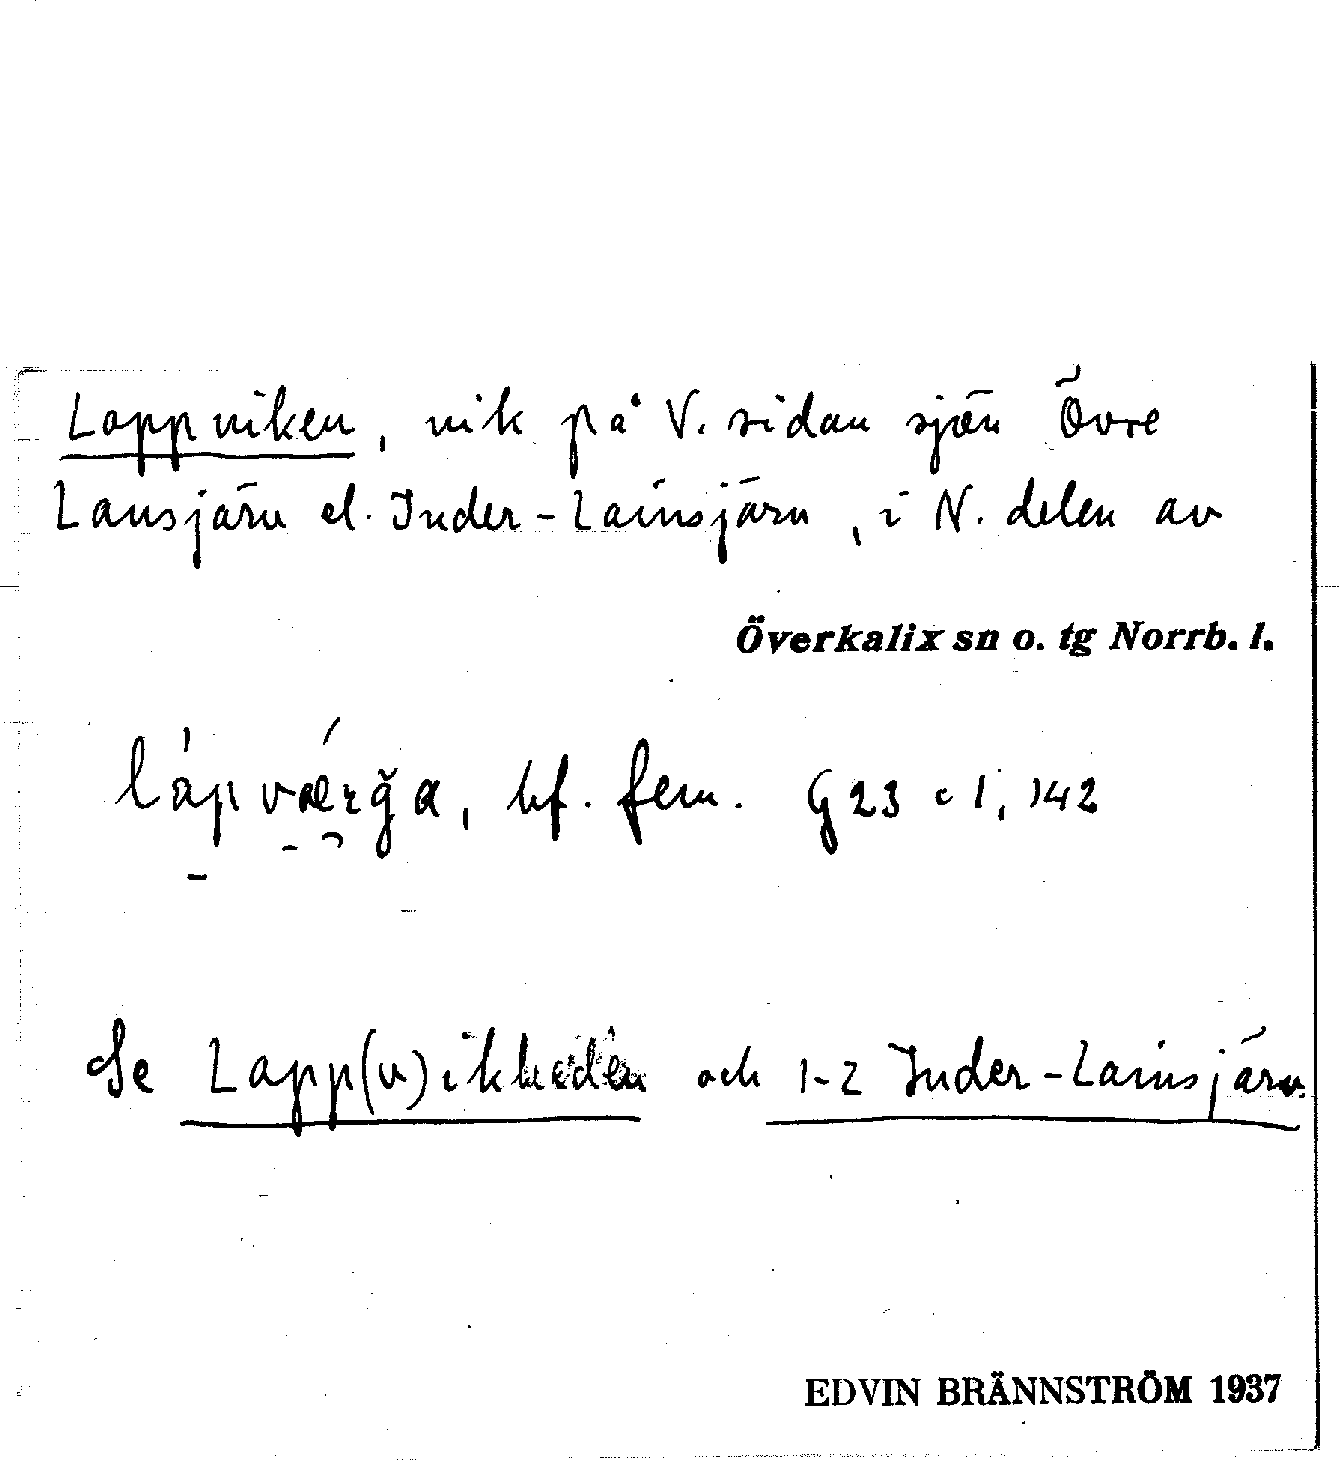 Lappviken, vik på V. sidan sjön Övre
Lansjärv el. Inder-Lainsjärv, i N. delen av
Överkalix sn o. tg Norrb. l.
lápværğa, bf. fem. G 23 c 1, 142
Se Lapp(v)ikheden och 1-2 Inder-Lainsjärv.
EDVIN BRÄNNSTRÖM 1937